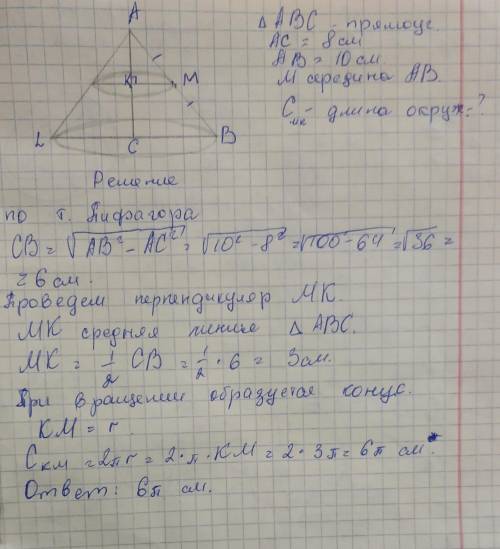 A
Δ ABC - прямоуг.
AC = 8 см
AB = 10 см
M середина AB.
C мк - длина окруж - ?
K
M
L
C
B
Решение
по т. Пифагора
CB = √AB² - AC² = √10² - 8² = √100 - 64 = √36 =
= 6 см.
Проведем перпендикуляр MK.
MK средняя линия Δ ABC.
MK = 1/2 CB = 1/2 · 6 = 3 см.
При вращении образуется конус.
KM = r.
C км = 2πr = 2 · π · KM = 2 · 3π = 6π см.
Ответ: 6π см.